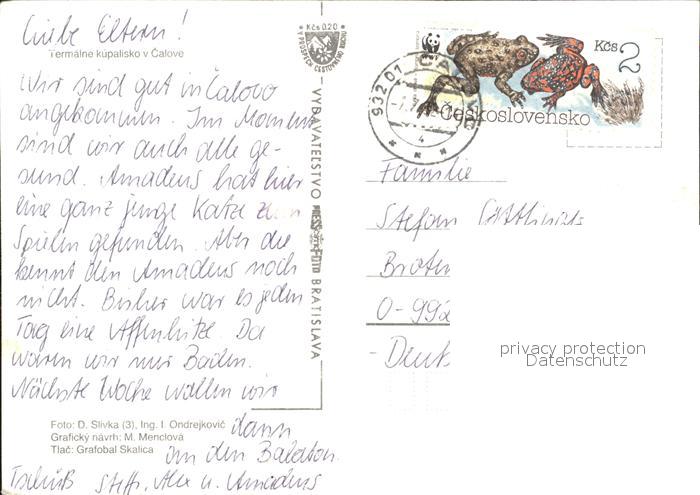 Liebe Eltern!
Termálne kúpalisko v Čalove
Wir sind gut in Čalovo
angekommen. Im Moment
sind wir auch alle ge-
sund. Amadeus hat hier
eine ganz junge Katze zum
Spielen gefunden. Aber die
kennt den Amadeus noch
nicht. Bisher war es jeden
Tag eine Affenhitze. Da
waren wir nur Baden.
Nächste Woche wollen wir
dann
an den Balaton.
Tschüß Steffi, Alex u. Amadeus
Foto: D. Slivka (3), Ing. I. Ondrejkovič
Grafický návrh: M. Menclová
Tlač: Grafobal Skalica
Kčs 0,20
VYDAVATEĽSTVO PRESSFOTO BRATISLAVA
932 01
4
Kčs 2
Československo
Familie
Stefan
O-992
- Deut
privacy protection
Datenschutz